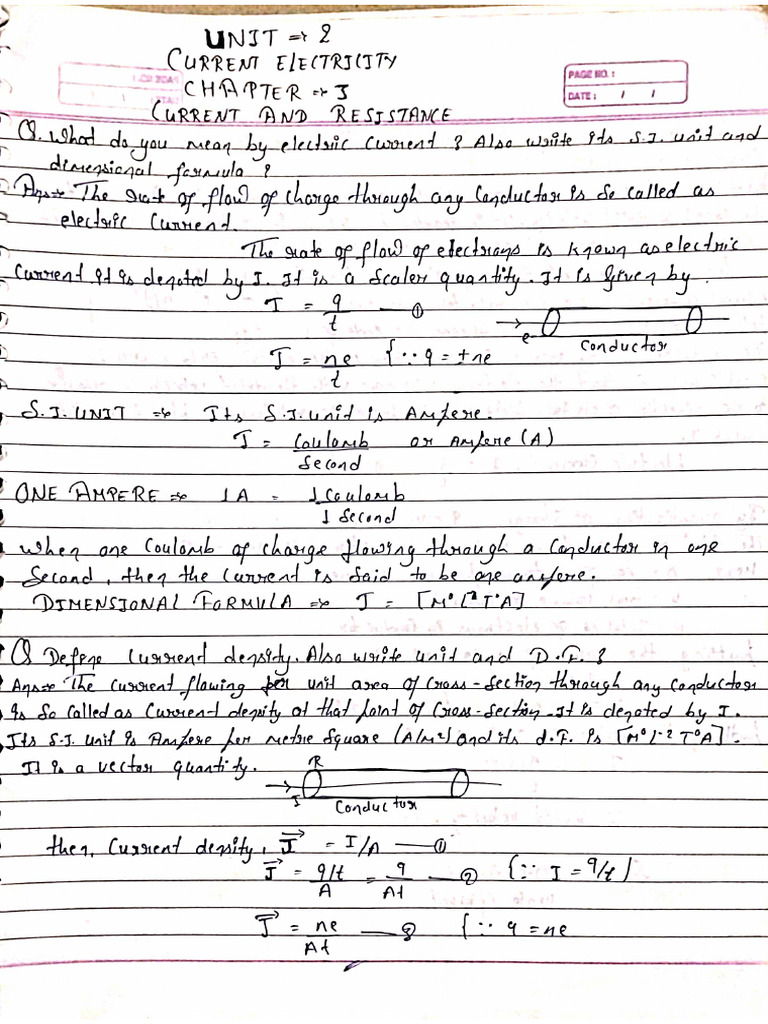 UNIT ⇒ 2
CURRENT ELECTRICITY
CHAPTER ⇒ 1
CURRENT AND RESISTANCE
PAGE NO. :
DATE : / /
Q. What do you mean by electric current ? Also write its S.I. unit and
dimensional formula ?
Ans⇒ The rate of flow of charge through any conductor is so called as
electric current.
The rate of flow of electrons is known as electric
current it is denoted by I. It is a scaler quantity. It is given by.
I = q/t —— ①
e⁻
conductor
I = ne/t {∵ q = ±ne
S.I. UNIT ⇒ Its S.I. unit is Ampere.
I = Coulomb/Second or Ampere (A)
ONE AMPERE ⇒ 1A = 1 Coulomb/1 Second
When one Coulomb of charge flowing through a conductor in one
second, then the current is said to be one ampere.
DIMENSIONAL FORMULA ⇒ I = [M⁰L⁰T⁰A]
Q Define current density. Also write unit and D.F. ?
Ans⇒ The current flowing per unit area of cross-section through any conductor
is so called as current density at that point of cross-section. It is denoted by J.
Its S.I. unit is Ampere per metre square (A/M²) and its d.F. is [M⁰L⁻²T⁰A].
It is a vector quantity.
A
I
conductor
then, Current density, J⃗ = I/A —— ①
J⃗ = q/t/A = q/At —— ② {∵ I = q/t}
J⃗ = ne/At —— ③ {∵ q = ne